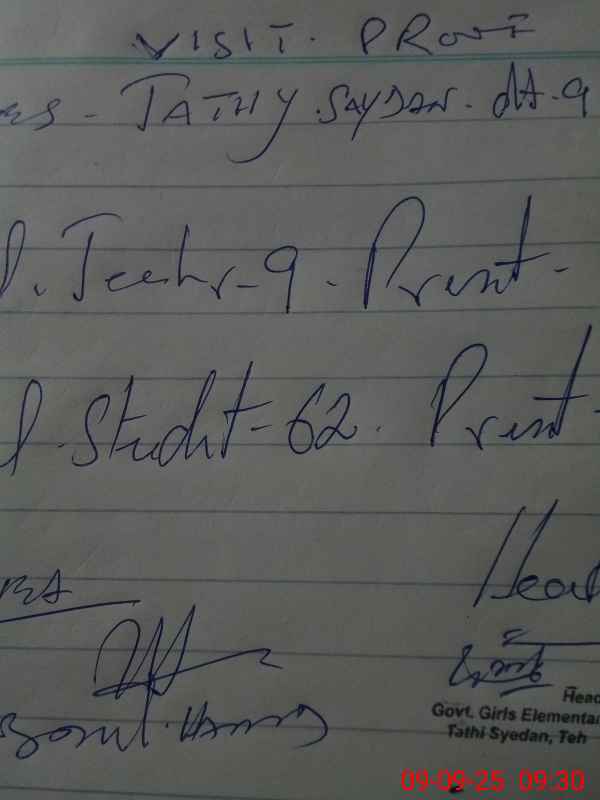 VISIT. PROOF
TATHY SAYDAN. dt. 9
. Teehr-9. Presnt-
l. Studnt-62. Presnt-
Head
Head
Govt. Girls Elementar
Tathi Syedan, Teh
09-09-25 09:30